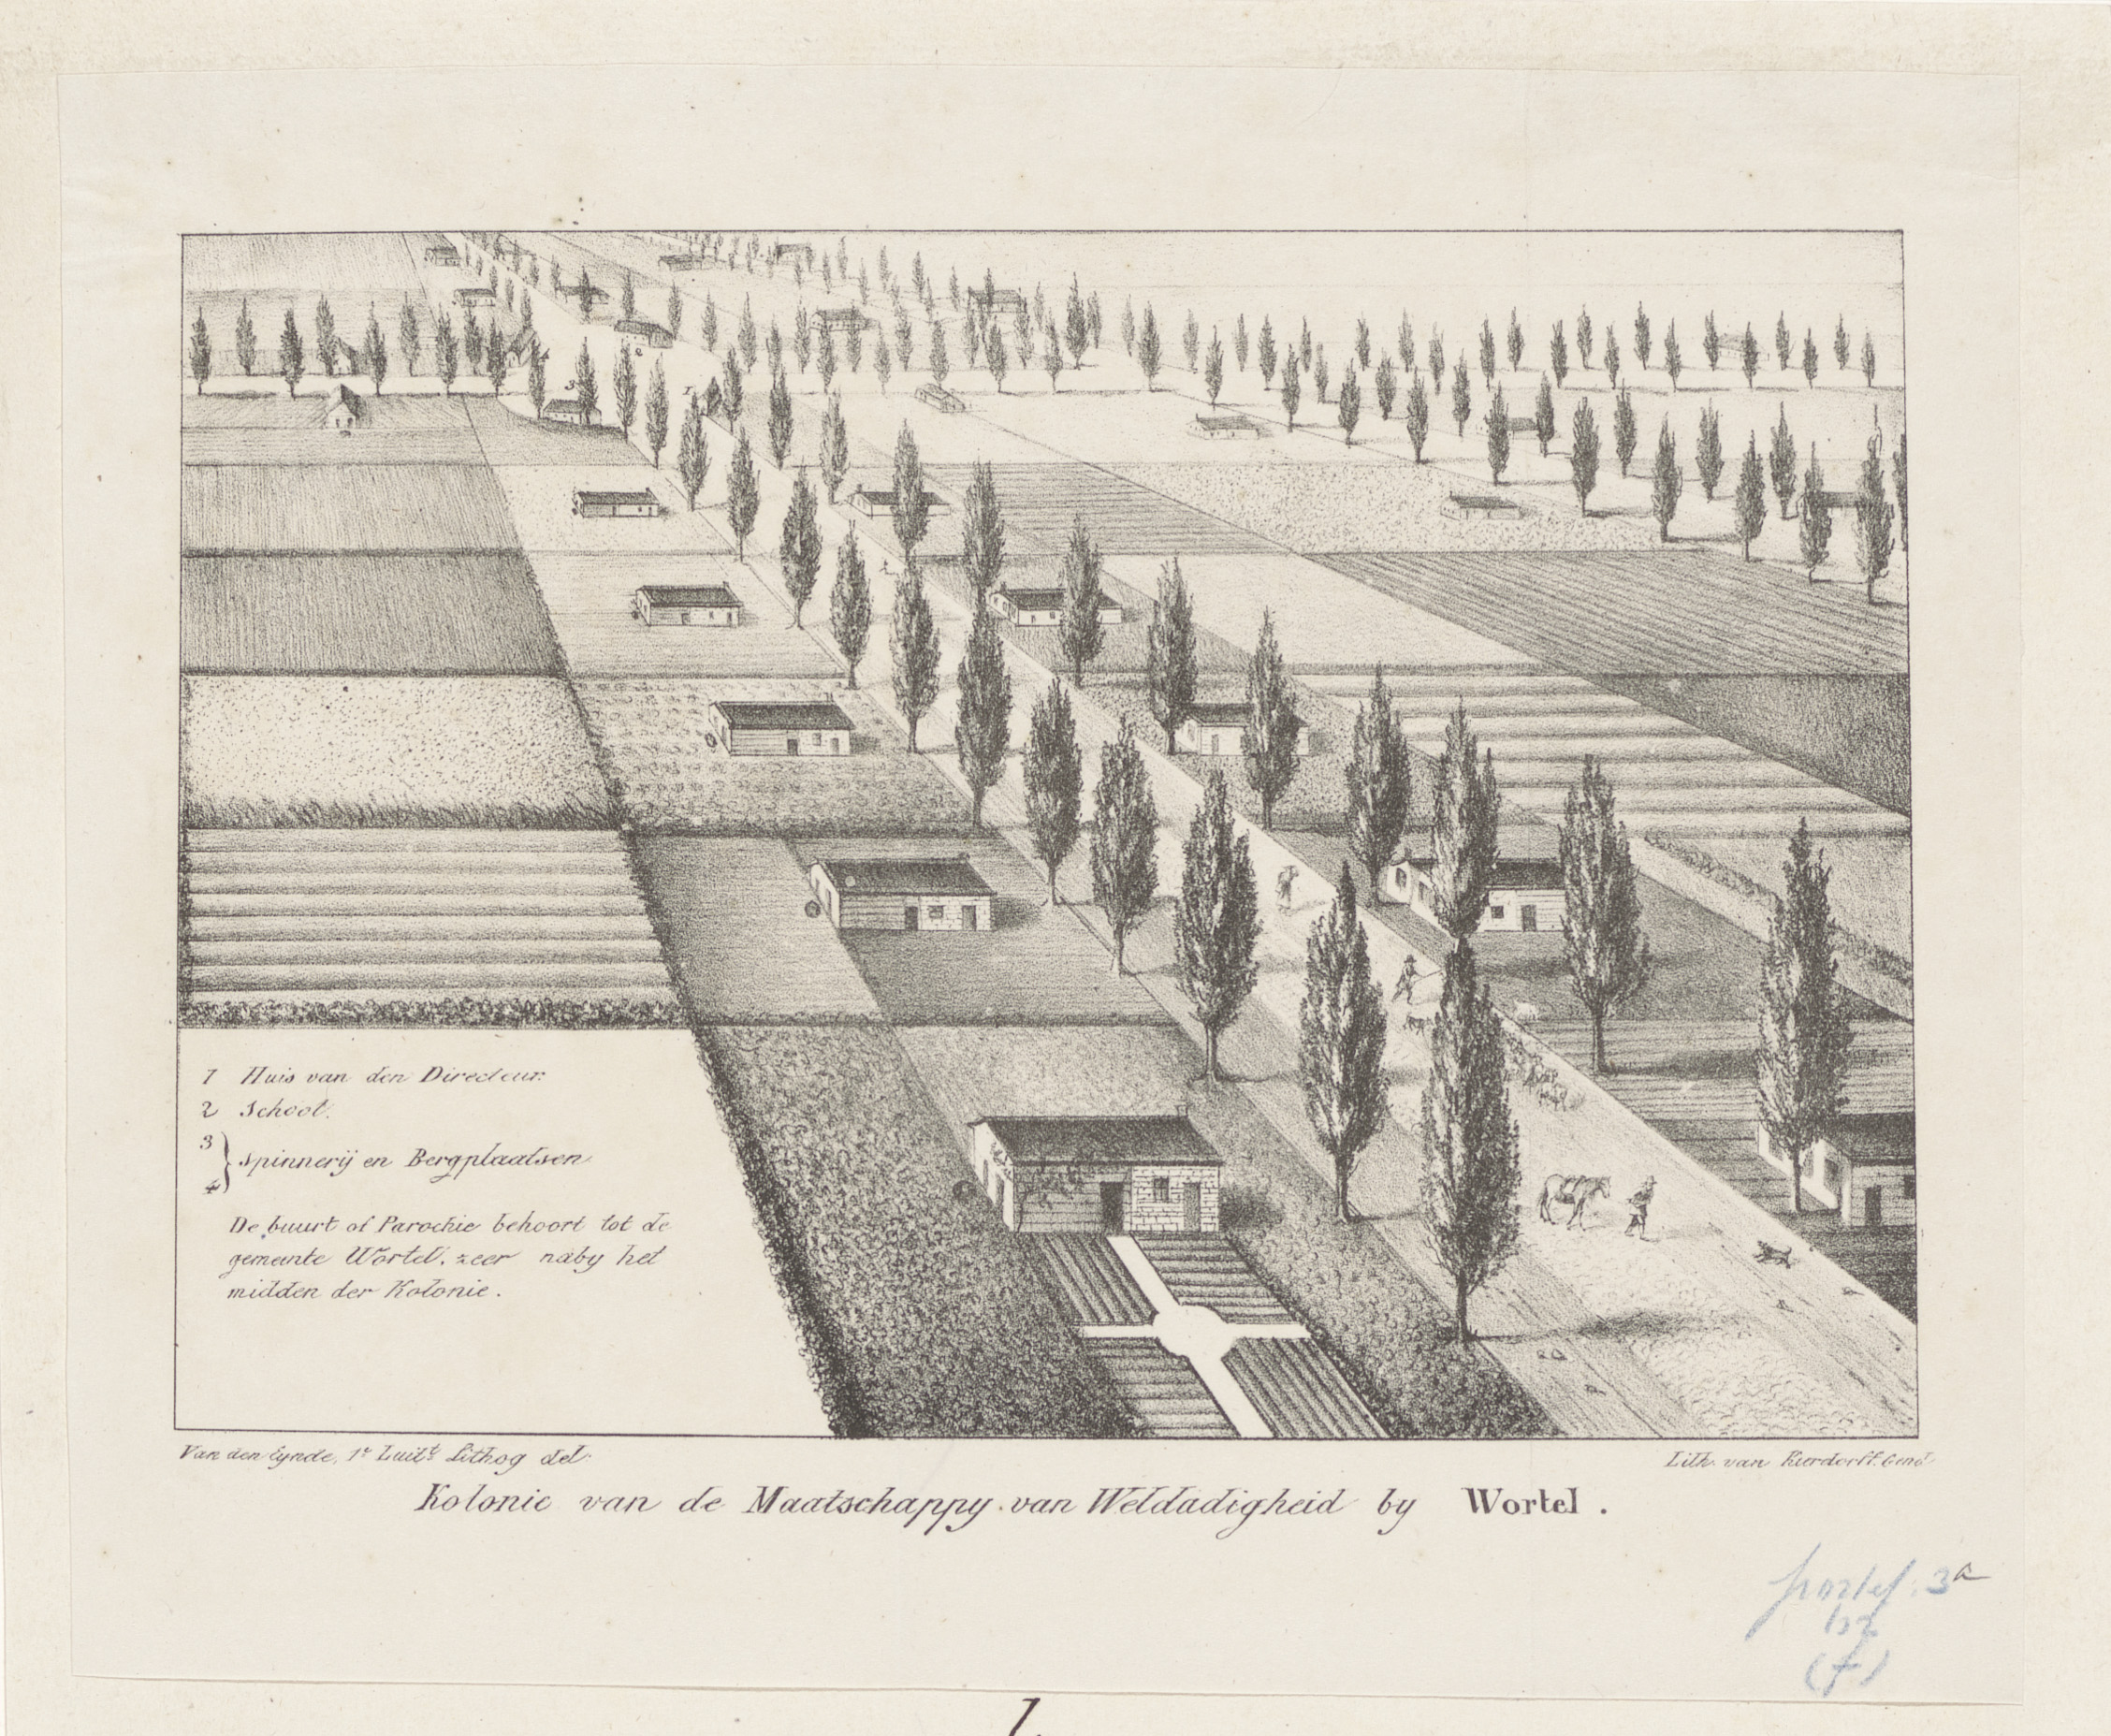 1 Huis van den Directeur.
2 School.
3
} Spinnerij en Bergplaatsen
4
De buurt of Parochie behoort tot de
gemeente Wortel, zeer naby het
midden der Kolonie.
Van den Eynde, 1e Luitt Lithog del.
Lith. van Kierdorff. Gend
Kolonie van de Maatschappy van Weldadigheid by Wortel.
3a
(f)